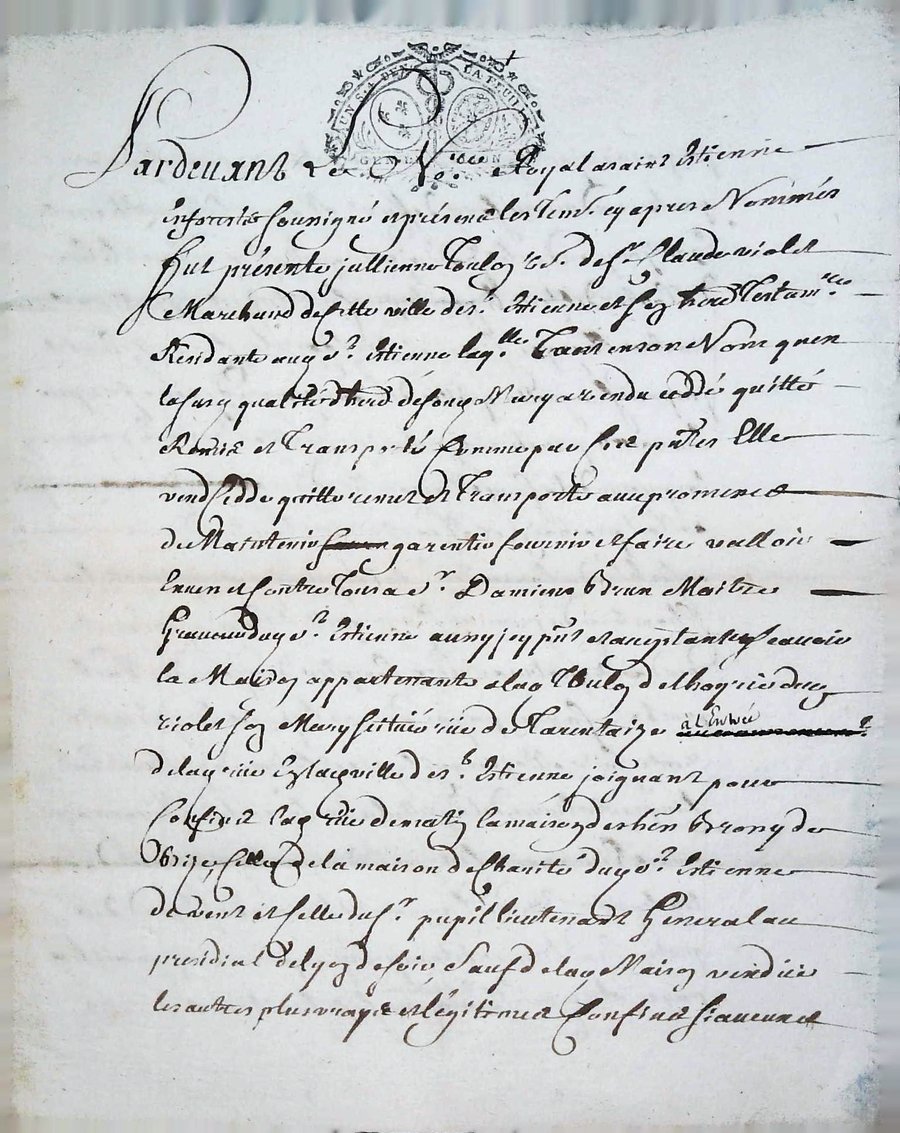 UN Sol DEN LA FEUIL
GENE
Pardevant Le No.re Royal a saint Estienne
en forests soubsigné et présence les Tem. cy apres Nommés
fut présente jullienne Touloz v.e de s.r Claude violet
Marchand de cette ville de s.t Estienne et sez herê Testam.re
Rendante aud s.t Estienne laq.lle Tant en son Nom qu'en
la susd qualité d'herê de son d Mary a vendu ceddé quitté
Remis et Transporté Comme par ces p.ntes Elle
vend cedde quitte remet et Transporte avec promesse
de Maintenir garentir fournir et faire valloir
Envers et Contre Tous a s.r Damiens Brun Maitre
Graveur dud s.t Estienne aussy jcy p.nt et acceptant sçavoir
la Maison appartenante a lad Touloz de l'hoyrie dud
violet son Mary scituée rüe de Tarentaize à L'Entrée
de lad rüe Ez lad ville de s.t Estienne joignant pour
Confins lad rüe de matin la maison des her Brony de
bize, Celle de la maison de Charité dud s.t Estienne
de vent et Celle du s.r pupil lieutenant General au
presidial de lyon de soir Sauf de lad Maison vendüe
les autres plus vrays et légitimes Confins si aucuns